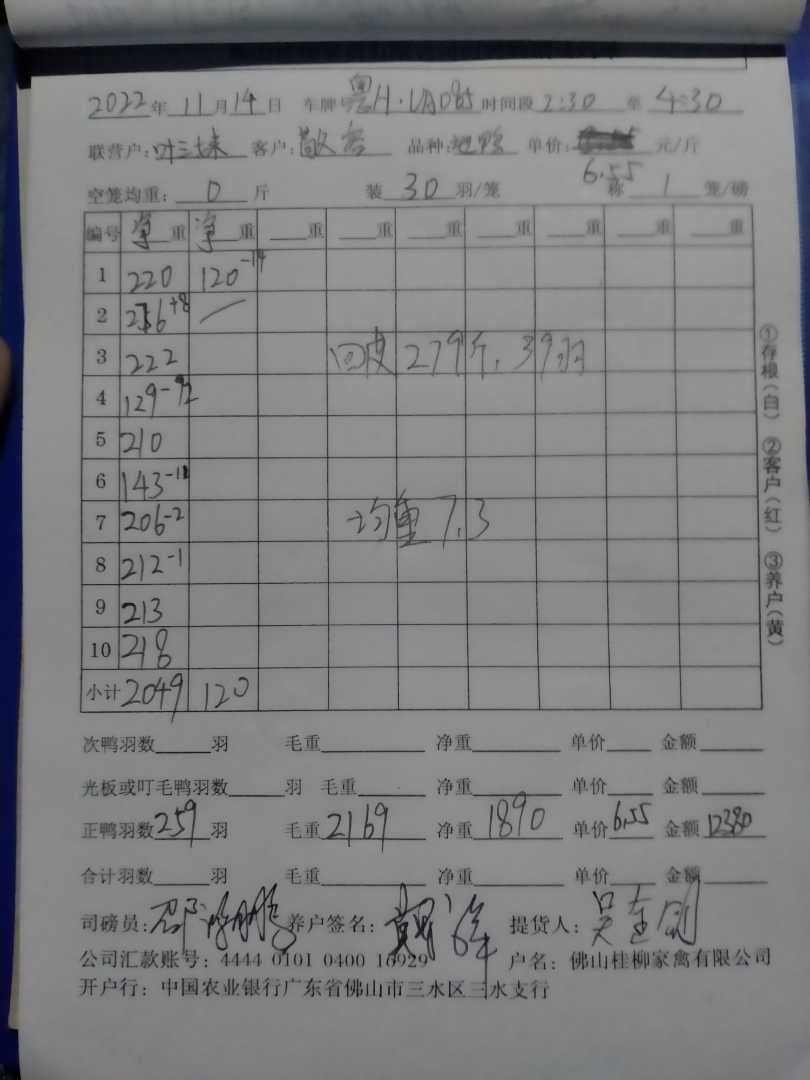 2022年 11月14日 车牌号粤H·UA085 时间段2:30 至 4:30
联营户: 叶三妹 客户: 敬容 品种: 单价: 元/斤
6.55
空笼均重: 0 斤 装 30 羽/笼 称 1 笼/磅
编号 净重 净重 重 重 重 重 重 重 重
1 220 120-14
2 256+8
3 222 回皮 279斤, 39羽
4 129-92
5 210
6 143-11
7 206-2 均重 7.3
8 212-1
9 213
10 218
小计 2049 120
次鸭羽数 羽 毛重 净重 单价 金额
光板或叮毛鸭羽数 羽 毛重 净重 单价 金额
正鸭羽数259 羽 毛重2169 净重 1890 单价6.55 金额12380
合计羽数 羽 毛重 净重 单价 金额
司磅员: 养户签名: 提货人:
公司汇款账号: 4444 0101 0400 16929 户名: 佛山桂柳家禽有限公司
开户行: 中国农业银行广东省佛山市三水区三水支行
①存根(白) ②客户(红) ③养户(黄)